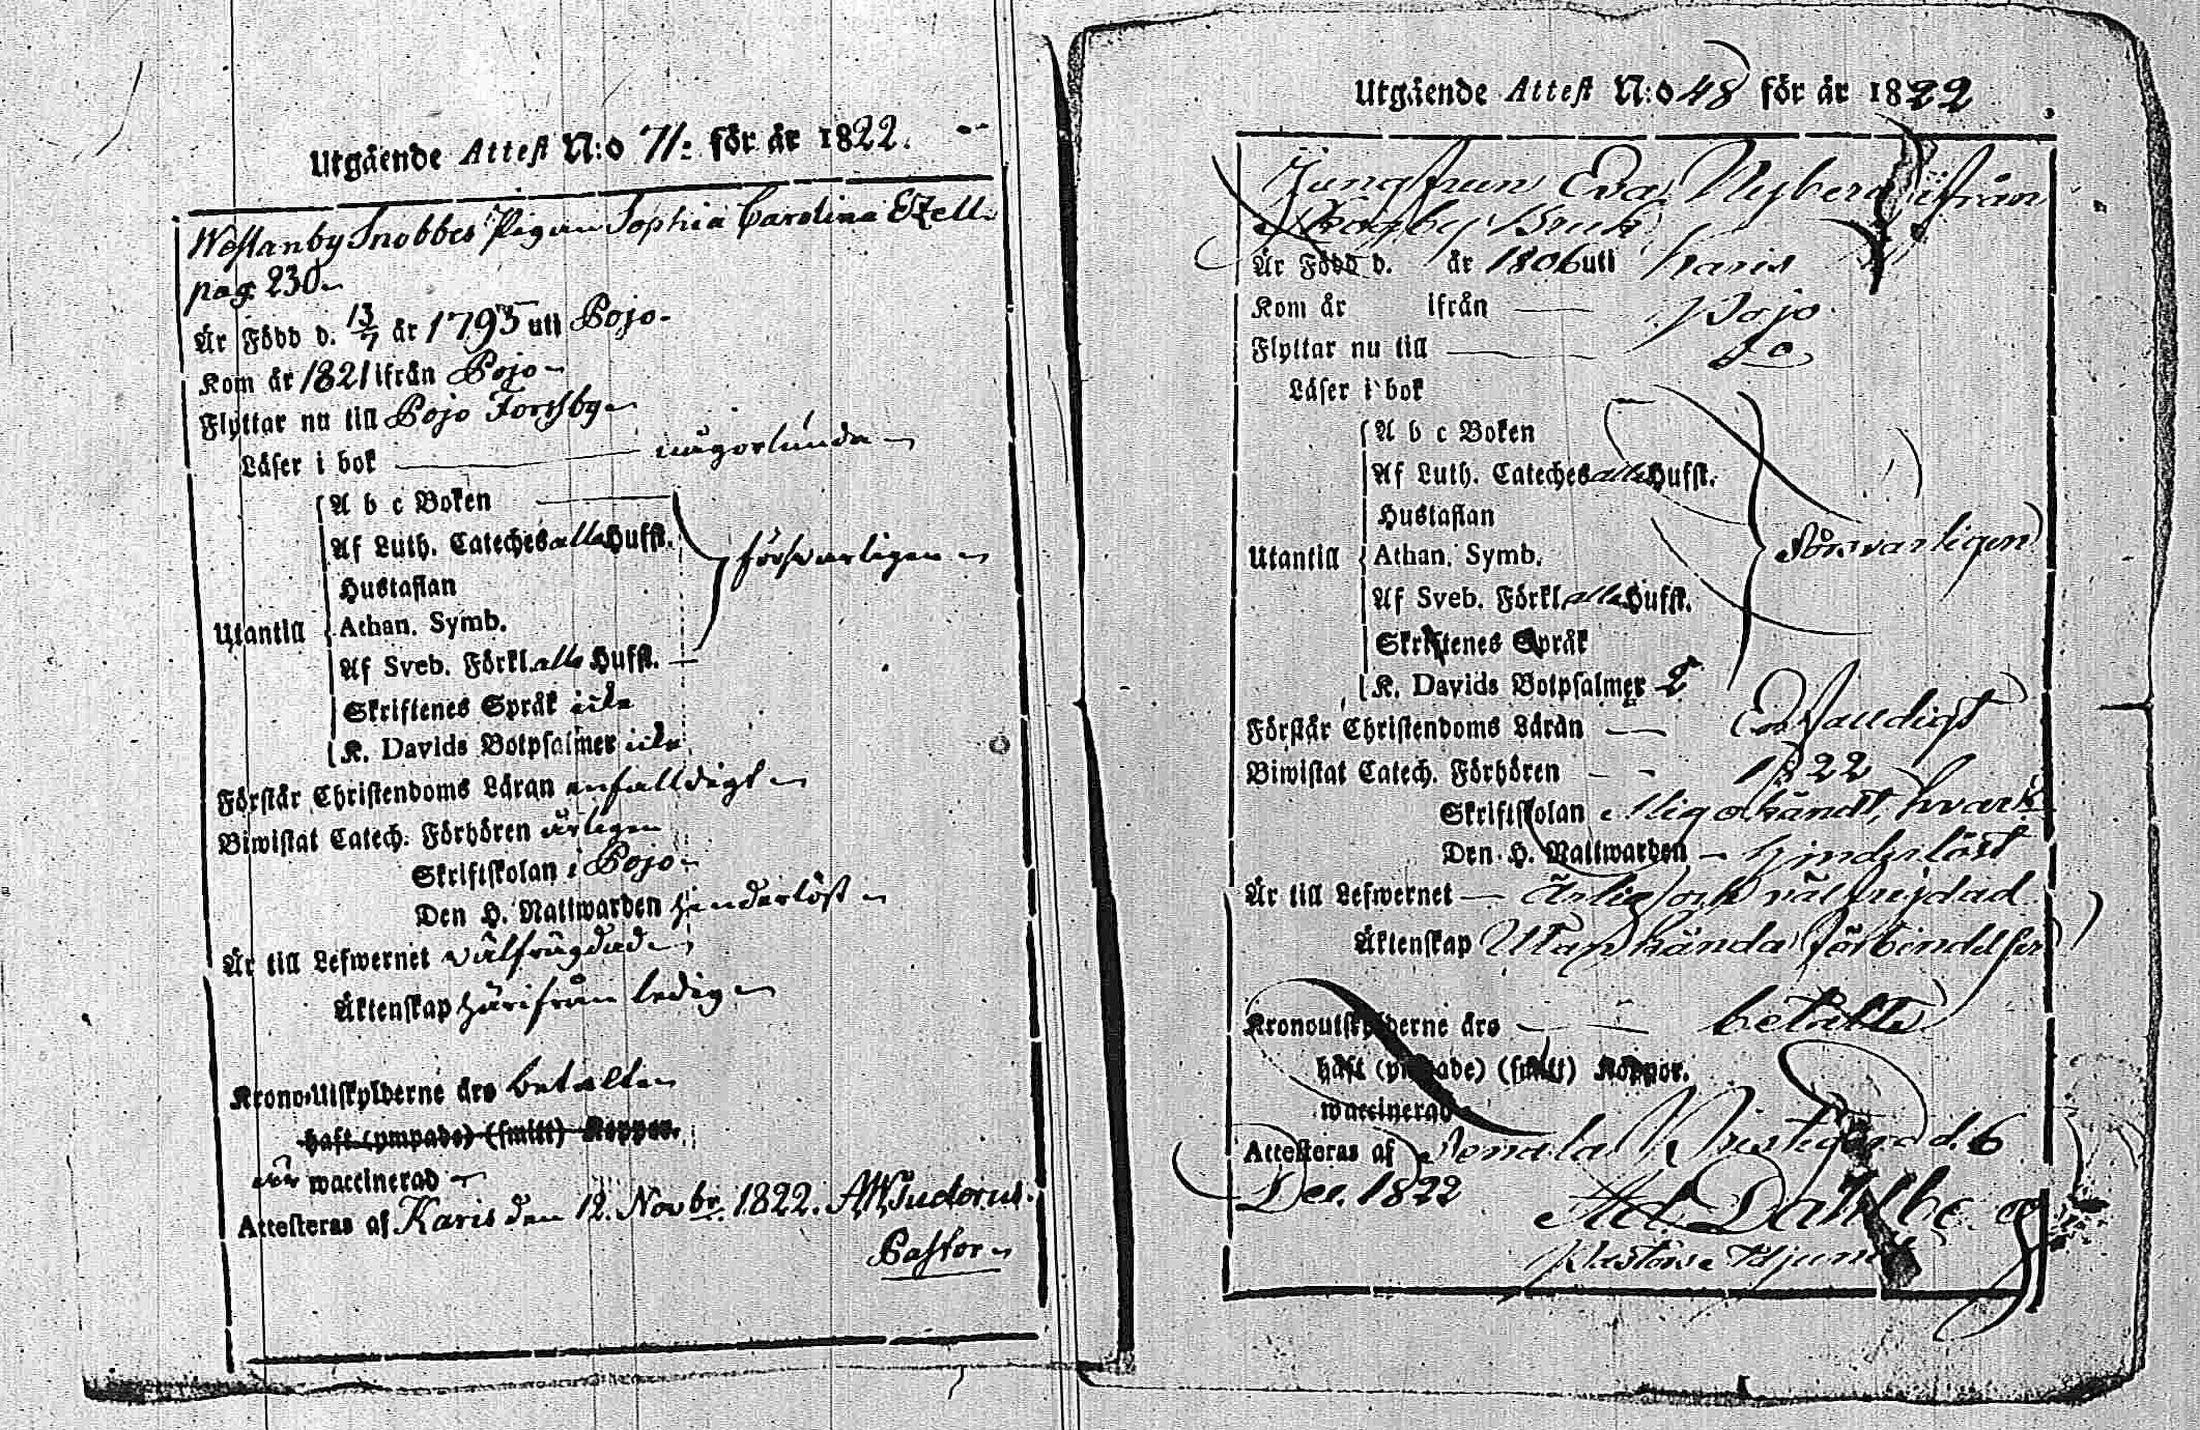 Utgående Attest N:o 71: för år 1822.
Westanby Snobbes Pigan Sophia Carolina Ezell
pag. 230
Är Född d. 13/7 år 1793 uti Pojo
Kom år 1821 ifrån Pojo
Flyttar nu till Pojo Forssby
Läser i bok någorlunda
A b c Boken
Af Luth. Cateches alla Hufst.
försvarligen
Hustaflan
Utantill
Athan. Symb.
Af Sveb. Förkl. alla Hufst.
Skriftenes Språk icke
K. Davids Botpsalmer icke
Förstår Christendoms Läran enfalldigt
Biwistat Catech. Förhören årligen
Skriftskolan i Pojo
Den H. Nattwarden hinderlöst
Är till Lefwernet välfrägdad
Äktenskap härifrån ledig
Krono-Utskylderne äro betalte
haft (ympade) (smitt) Koppor.
är waccinerad
Attesteras af Karis den 12. Novbr. 1822.
Pastor
Utgående Attest N:o 48 för år 1822
Jungfrun Eva Nyberg ifrån
Skogby Bruk
Är Född d. år 1806 uti Karis
Kom år ifrån Pojo
Flyttar nu till do
Läser i bok
A b c Boken
Af Luth. Cateches alla Hufst.
Hustaflan
Utantill
Athan. Symb.
Försvarligen
Af Sveb. Förkl. alla Hufst.
Skriftenes Språk
K. Davids Botpsalmer 2
Förstår Christendoms Läran Enfaldigt
Biwistat Catech. Förhören 1822
Skriftskolan Mig okändt, hvark
Den H. Nattwarden hinderlöst
Är till Lefwernet Ärlig och välfrejdad
Äktenskap Utan kända förbindelser
Kronoutskylderne äro betalte
haft (ympade) (smitt) Koppor.
waccinerad
Attesteras af Tenala Prestegård d. 6
Dec. 1822
Ad. Dahlberg
Pastors Adjunct